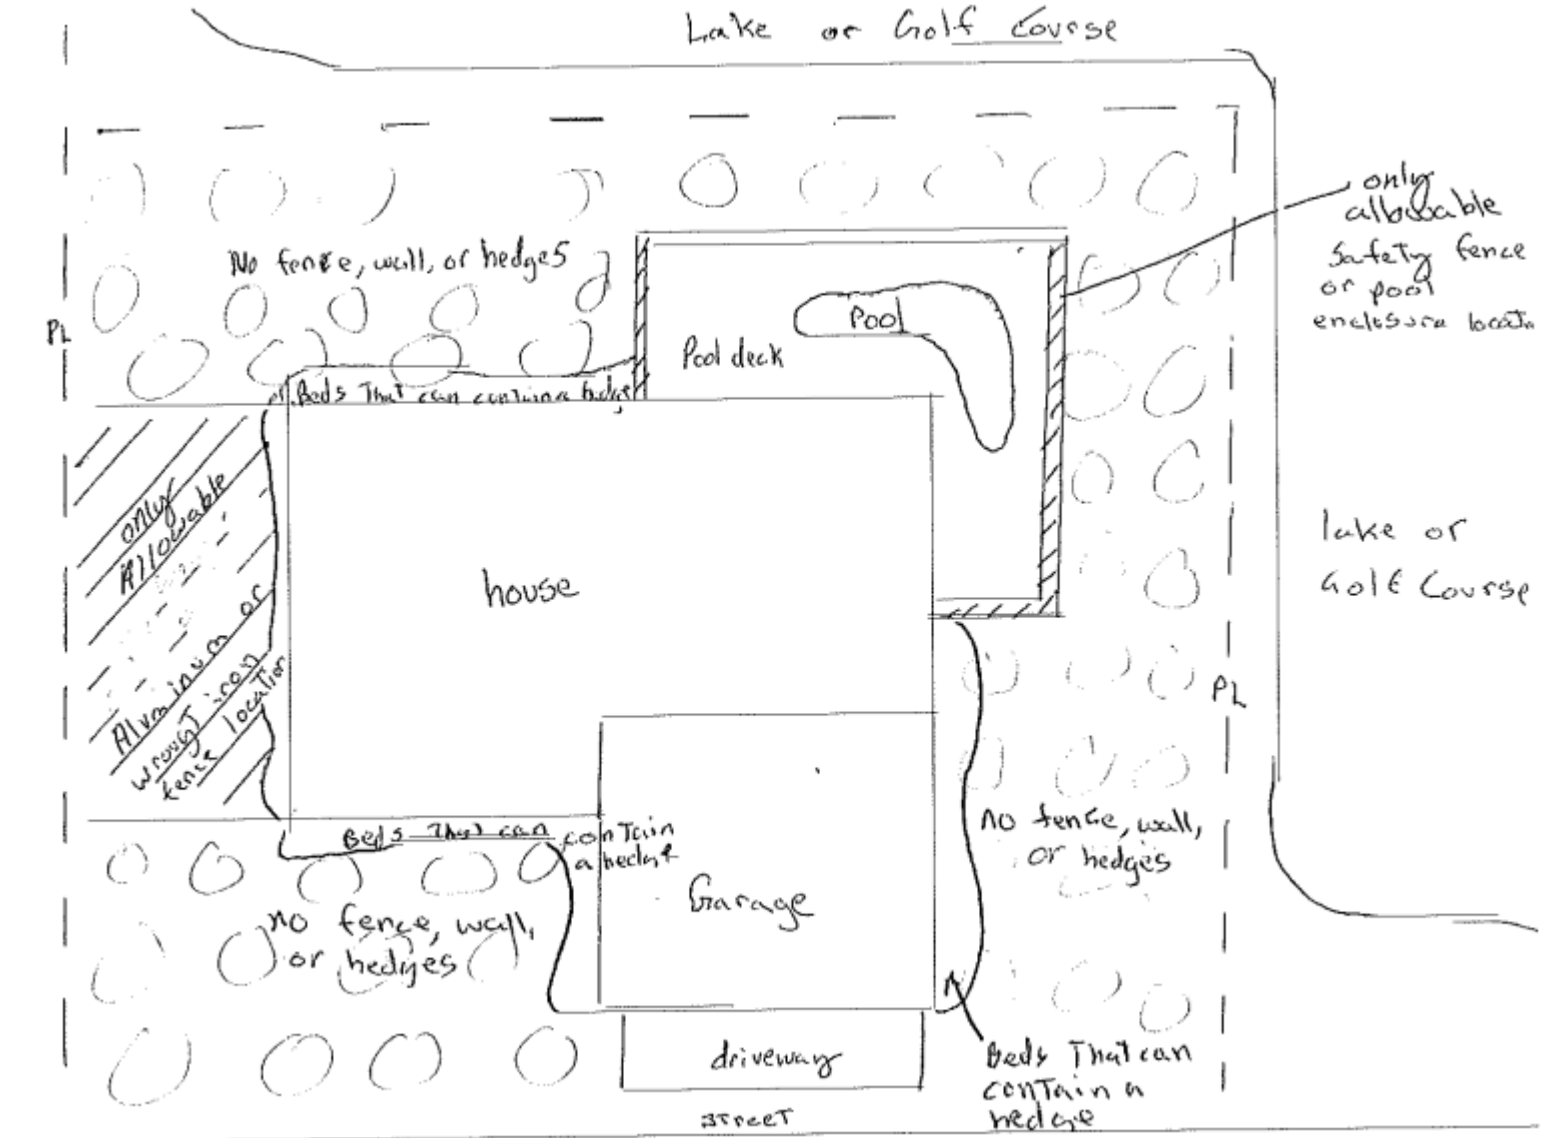 Lake or Golf Course
only
allowable
safety fence
or pool
enclosure locatn
No fence, wall, or hedges
PL
Pool
Pool deck
or Beds That can contain a hedge
only
Allowable
Aluminum or
wrought iron
fence location
house
lake or
Golf Course
PL
Beds That can contain
a hedge
No fence, wall,
or hedges
Garage
no fence, wall,
or hedges
driveway
Beds That can
contain a
hedge
Street